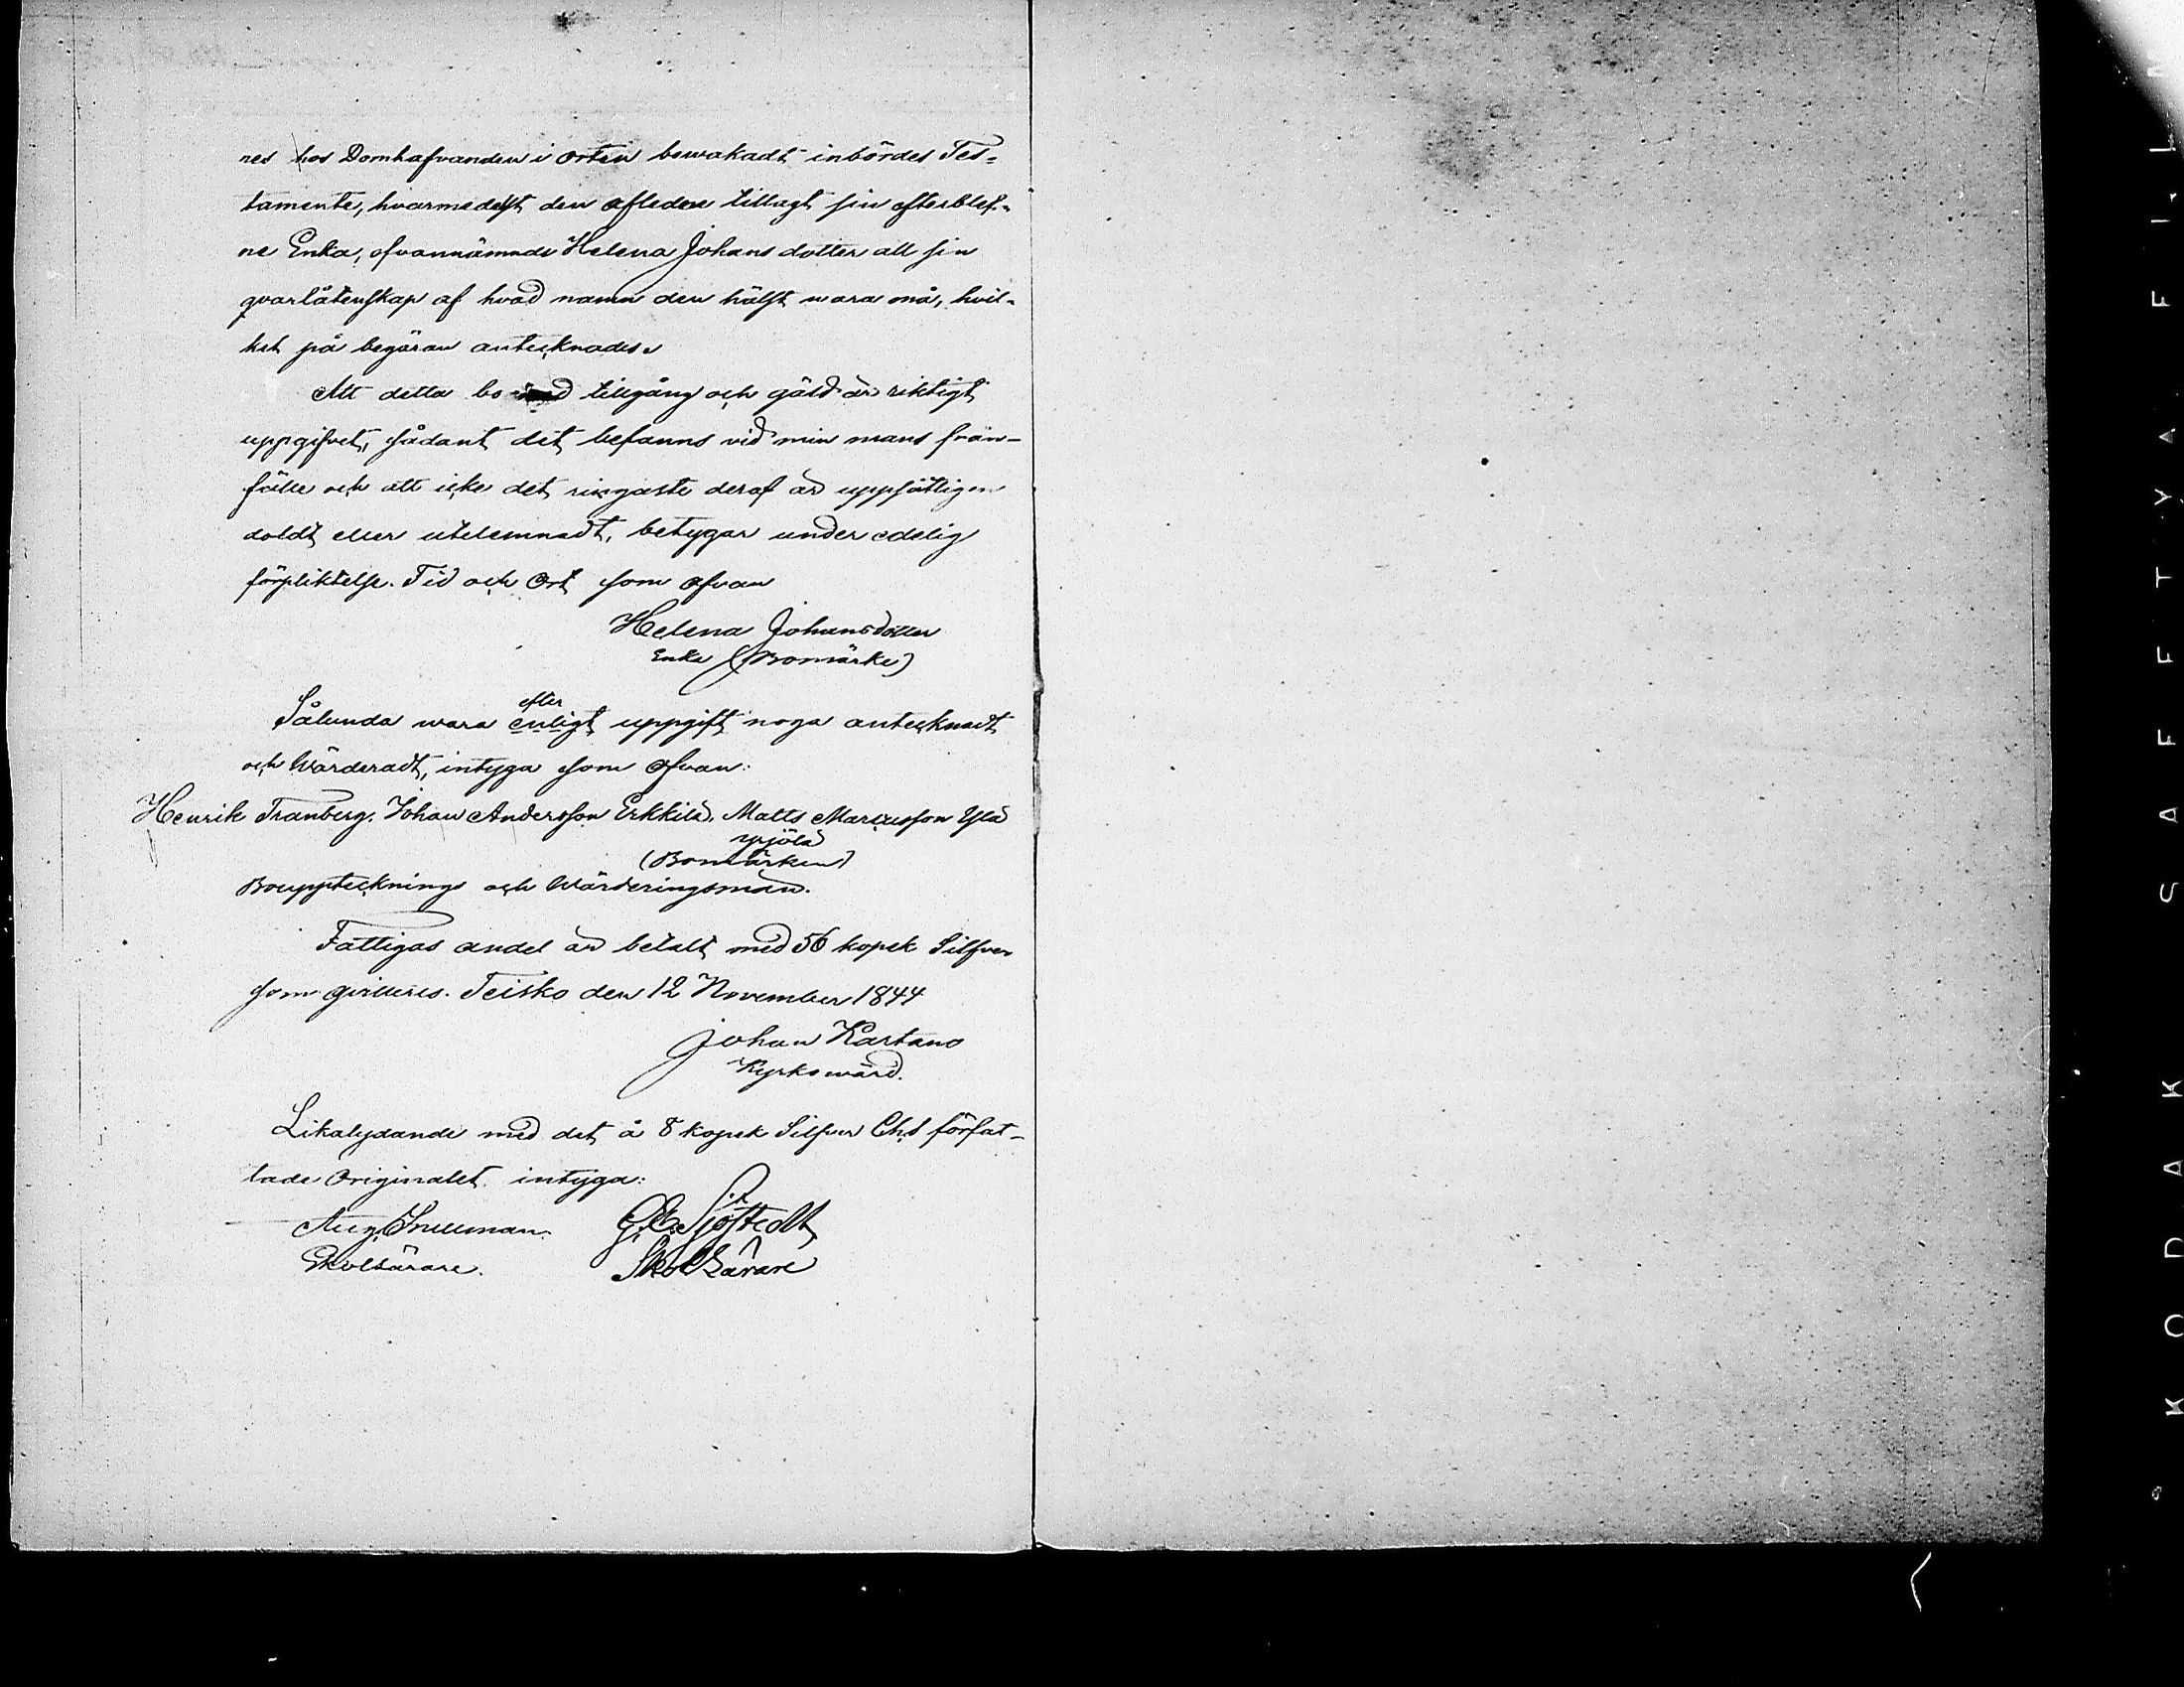 nes hos Domhafvanden i orten bewakadt inbördes Tes=
tamente, hvarmedelst den afledne tillagt sin efterblef=
ne Enka, ofvannämnde Helena Johans dotter all sin
qvarlåtenskap af hvad namn den hälst wara må, hvil=
ket på begäran antecknades.
Att detta bo tillgång och gäld är riktigt
uppgifvet, sådant det befanns vid min mans från-
fälle och att icke det ringaste deraf är uppsåtligen
doldt eller utelemnadt, betygar under edelig
förpliktelse. Tid och Ort som ofvan
Helena Johansdotter
Enka (Bomärke)
efter
Sålunda wara enligt uppgift noga antecknadt
och Wärderadt, intyga som ofvan:
Henrik Tranberg. Johan Andersson Erkkilä. Matts Marcusson Ylä
ypjölä
(Bomärken)
Bouppteknings och Wärderingsmän.
Fattigas andel är betalt med 56 kopek Silfver
som qvitteres. Teisko den 12 November 1844
Johan Kartano
Kyrkowärd.
Likalydande med det å 8 kopek Silfver Ch.S författ-
tade Originalet intyga:
Aug. Snellman. G. E. Sjöstedt
Skollärare. Skollärare
KODAK SAFETY A FILM